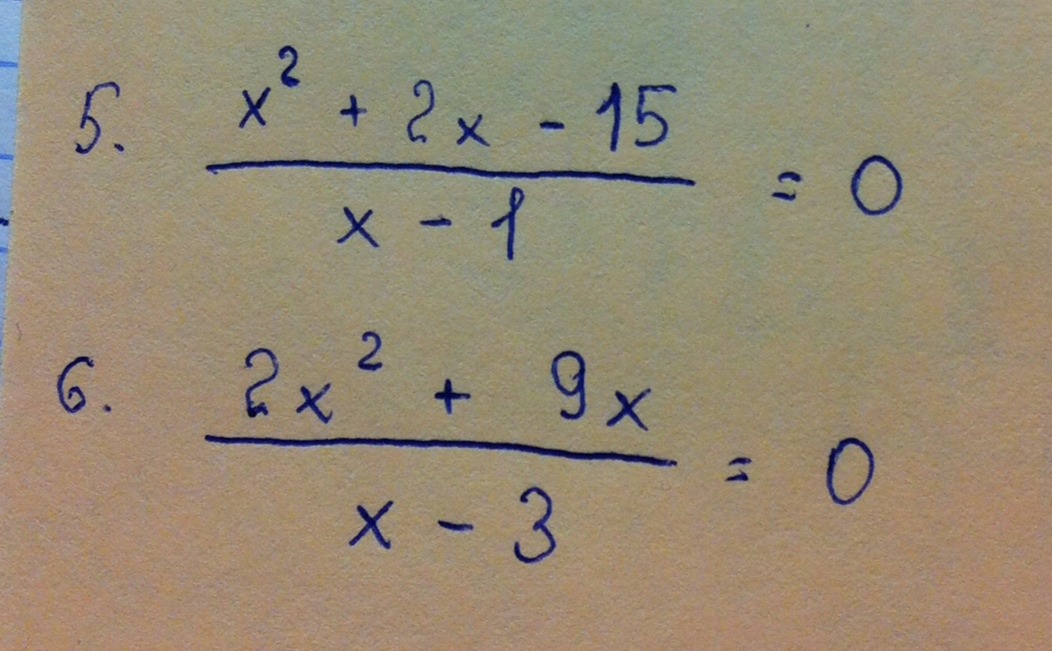 5. x² + 2x - 15
x - 1 = 0
6. 2x² + 9x
x - 3 = 0